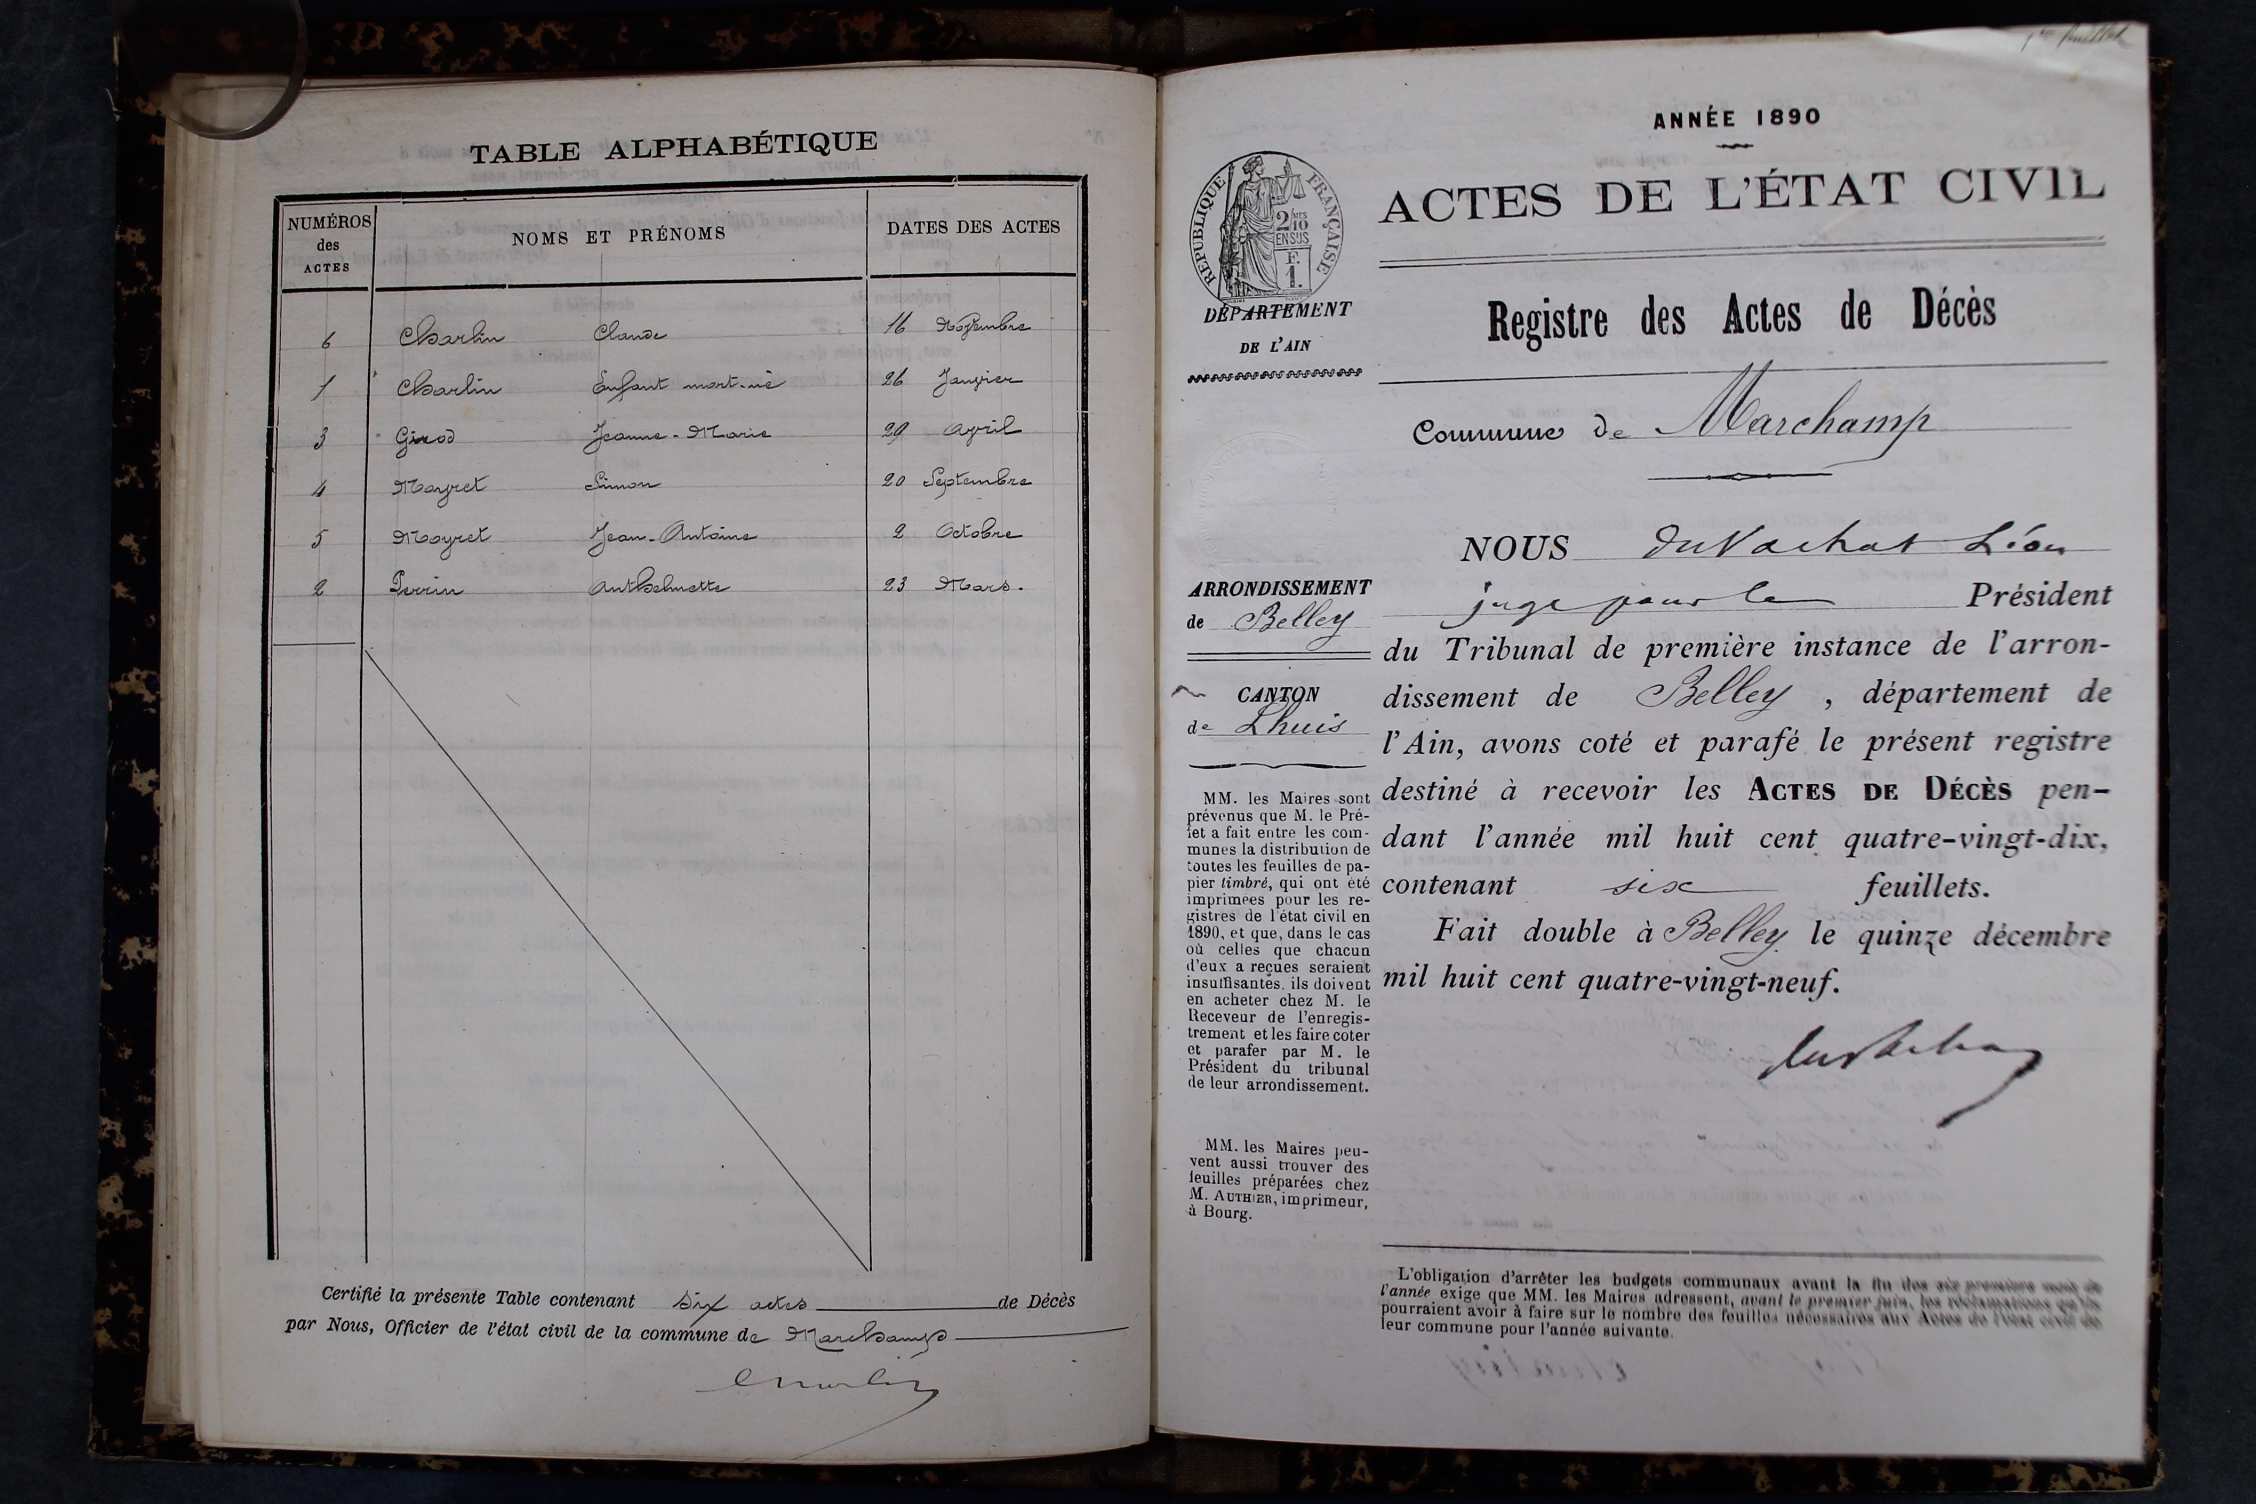 TABLE ALPHABÉTIQUE
NUMÉROS des ACTES NOMS ET PRÉNOMS DATES DES ACTES
6 Charlin Claude 16 Novembre
1 Charlin Enfant mort-né 26 Janvier
3 Girod Jeanne-Marie 29 Avril
4 Mayret Simon 20 Septembre
5 Mayret Jean-Antoine 2 Octobre
2 Perrin Anthelmette 23 Mars.
Certifié la présente Table contenant six actes de Décès
par Nous, Officier de l'état civil de la commune de Marchamp
Charlin
1er feuillet
ANNÉE 1890
RÉPUBLIQUE FRANÇAISE
2/10 EN SUS
F. 1.
DÉPARTEMENT
DE L'AIN
ACTES DE L'ÉTAT CIVIL
Registre des Actes de Décès
Commune de Marchamp
ARRONDISSEMENT
de Belley
CANTON
de Lhuis
MM. les Maires sont
prévenus que M. le Pré-
fet a fait entre les com-
munes la distribution de
toutes les feuilles de pa-
pier timbré, qui ont été
imprimées pour les re-
gistres de l'état civil en
1890, et que, dans le cas
où celles que chacun
d'eux a reçues seraient
insuffisantes, ils doivent
en acheter chez M. le
Receveur de l'enregis-
trement et les faire coter
et parafer par M. le
Président du tribunal
de leur arrondissement.
MM. les Maires peu-
vent aussi trouver des
feuilles préparées chez
M. AUTHIER, imprimeur,
à Bourg.
NOUS du Vachat Léon
juge pour le Président
du Tribunal de première instance de l'arron-
dissement de Belley, département de
l'Ain, avons coté et parafé le présent registre
destiné à recevoir les ACTES DE DÉCÈS pen-
dant l'année mil huit cent quatre-vingt-dix,
contenant six feuillets.
Fait double à Belley le quinze décembre
mil huit cent quatre-vingt-neuf.
L'obligation d'arrêter les budgets communaux avant la fin des six premiers mois de
l'année exige que MM. les Maires adressent, avant le premier juin, les réclamations qu'ils
pourraient avoir à faire sur le nombre des feuilles nécessaires aux Actes de l'état civil de
leur commune pour l'année suivante.